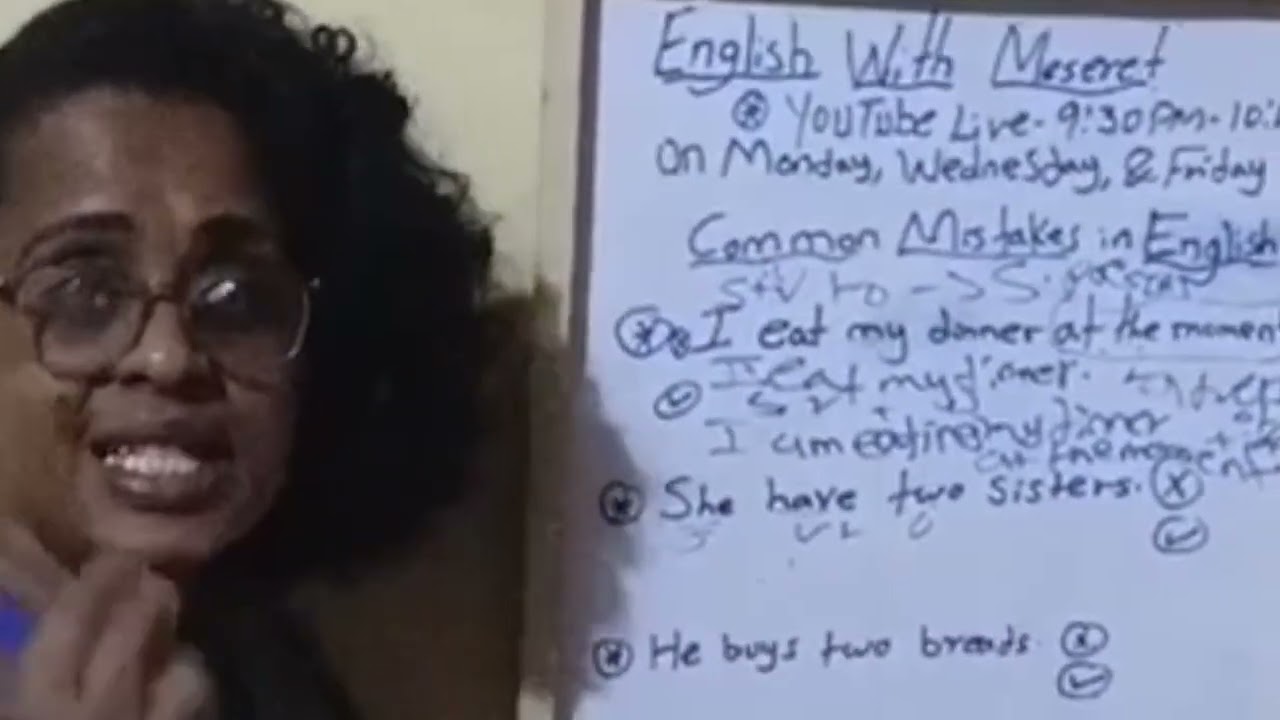 English With Meseret
YouTube Live - 9:30 PM - 10:
On Monday, Wednesday, & Friday
Common Mistakes in English
I eat my dinner at the moment
I eat my dinner.
I am eating my dinner
at the moment
She have two sisters.
He buys two breads.